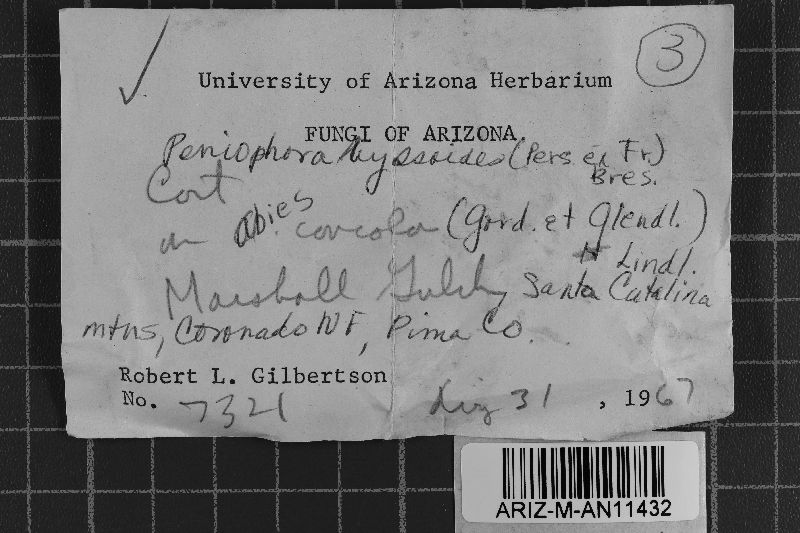 3
University of Arizona Herbarium
FUNGI OF ARIZONA
Peniophora byssoides (Pers. ex Fr.)
Bres.
Cort
on Abies concolor (Gord. et Glendl.)
Lindl.
Marshall Gulch, Santa Catalina
mtns, Coronado NF, Pima Co.
Robert L. Gilbertson
No. 7321 Aug 31, 1967
ARIZ-M-AN11432